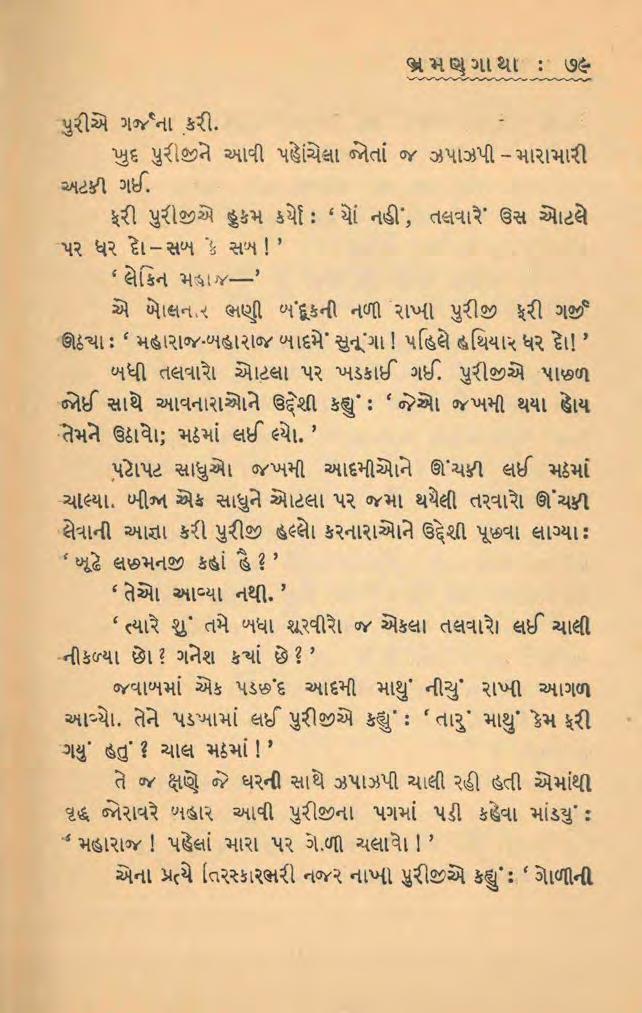 ભ્રમણગાથા : ૭૯
પુરીએ ગર્જના કરી.
ખુદ પુરીજીને આવી પહોંચેલા જોતાં જ ઝપાઝપી – મારામારી
અટકી ગઈ.
ફરી પુરીજીએ હુકમ કર્યો : ‘ યોં નહીં, તલવારેં ઉસ ઓટલે
પર ધર દો – સબ કે સબ ! ’
‘ લેકિન મહારાજ—’
એ બોલનાર ભણી બંદૂકની નળી રાખી પુરીજી ફરી ગર્જી
ઊઠ્યા : ‘ મહારાજ-બહારાજ બાદમેં સુનૂંગા ! પહિલે હથિયાર ધર દો! ’
બધી તલવારો ઓટલા પર ખડકાઈ ગઈ. પુરીજીએ પાછળ
જોઈ સાથે આવનારાઓને ઉદ્દેશી કહ્યું : ‘ જેઓ જખમી થયા હોય
તેમને ઉઠાવો; મઠમાં લઈ લ્યો. ’
પટોપટ સાધુઓ જખમી આદમીઓને ઊંચકી લઈ મઠમાં
ચાલ્યા. બીજા એક સાધુને ઓટલા પર જમા થયેલી તરવારો ઊંચકી
લેવાની આજ્ઞા કરી પુરીજી હલ્લો કરનારાઓને ઉદ્દેશી પૂછવા લાગ્યા :
‘ બૂઢે લછમનજી કહાં હૈ ? ’
‘ તેઓ આવ્યા નથી. ’
‘ ત્યારે શું તમે બધા શૂરવીરો જ એકલા તલવારો લઈ ચાલી
નીકળ્યા છો ? ગનેશ ક્યાં છે ? ’
જવાબમાં એક પડછંદ આદમી માથું નીચું રાખી આગળ
આવ્યો. તેને પડખામાં લઈ પુરીજીએ કહ્યું : ‘ તારું માથું કેમ ફરી
ગયું હતું ? ચાલ મઠમાં ! ’
તે જ ક્ષણે જે ઘરની સાથે ઝપાઝપી ચાલી રહી હતી એમાંથી
વૃદ્ધ જોરાવરે બહાર આવી પુરીજીના પગમાં પડી કહેવા માંડ્યું :
‘ મહારાજ ! પહેલાં મારા પર ગોળી ચલાવો ! ’
એના પ્રત્યે તિરસ્કારભરી નજર નાખી પુરીજીએ કહ્યું : ‘ ગોળીની